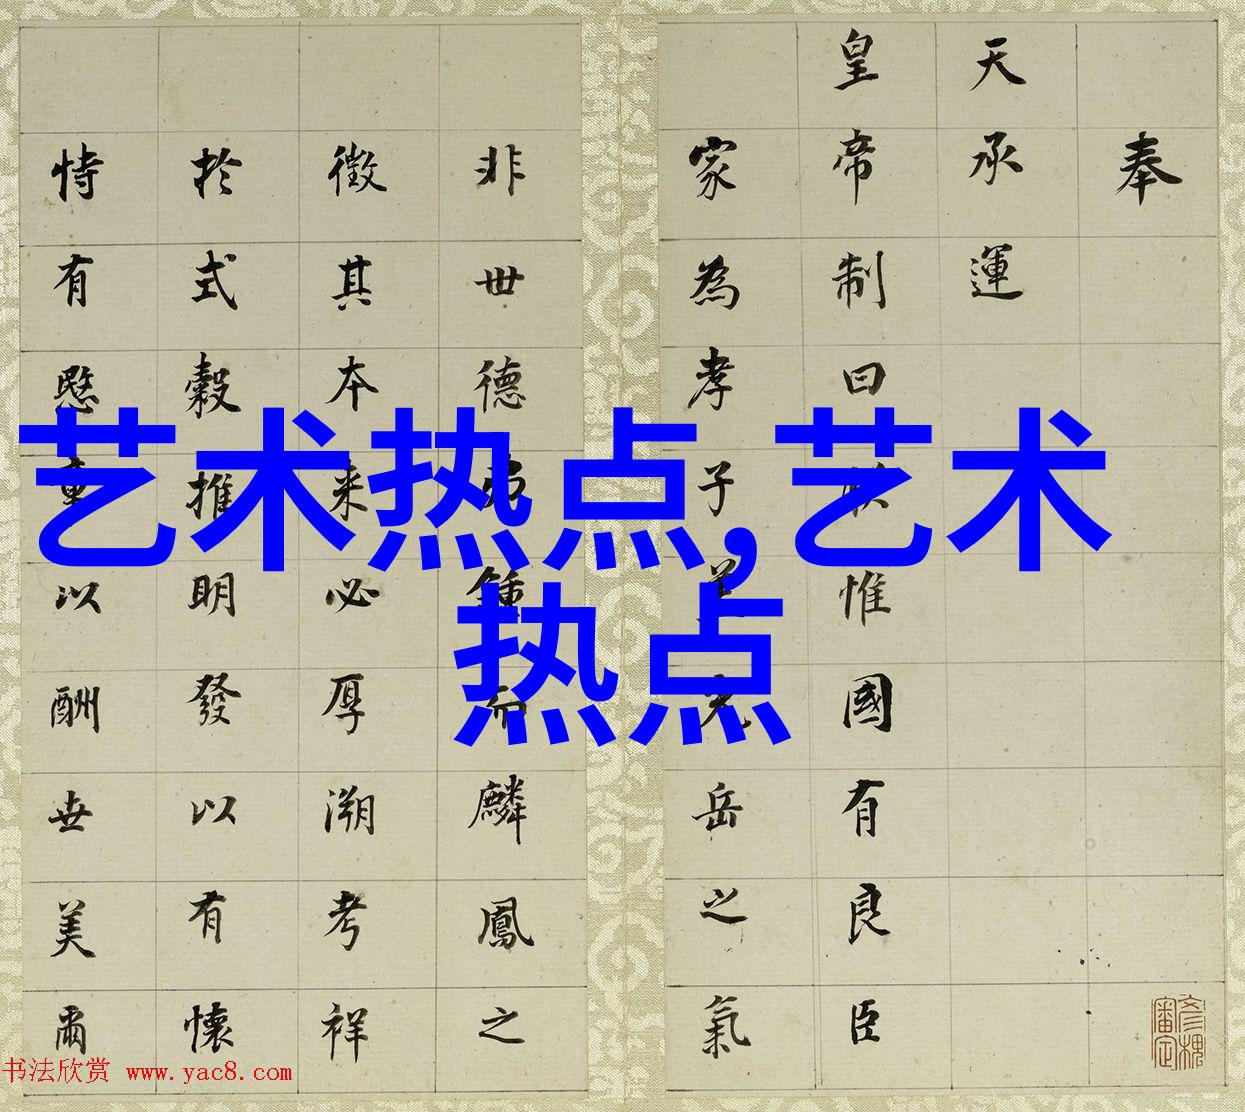 奉
天承運
皇帝制曰朕惟國有良臣
家為孝子元岳之氣
非世德弗鍾而麟鳳之
徵其本来必厚溯考祥
於式穀推明發以有懷
恃有愍以酬世美爾
艺术热点,艺术
热点
书法欣赏 www.yac8.com